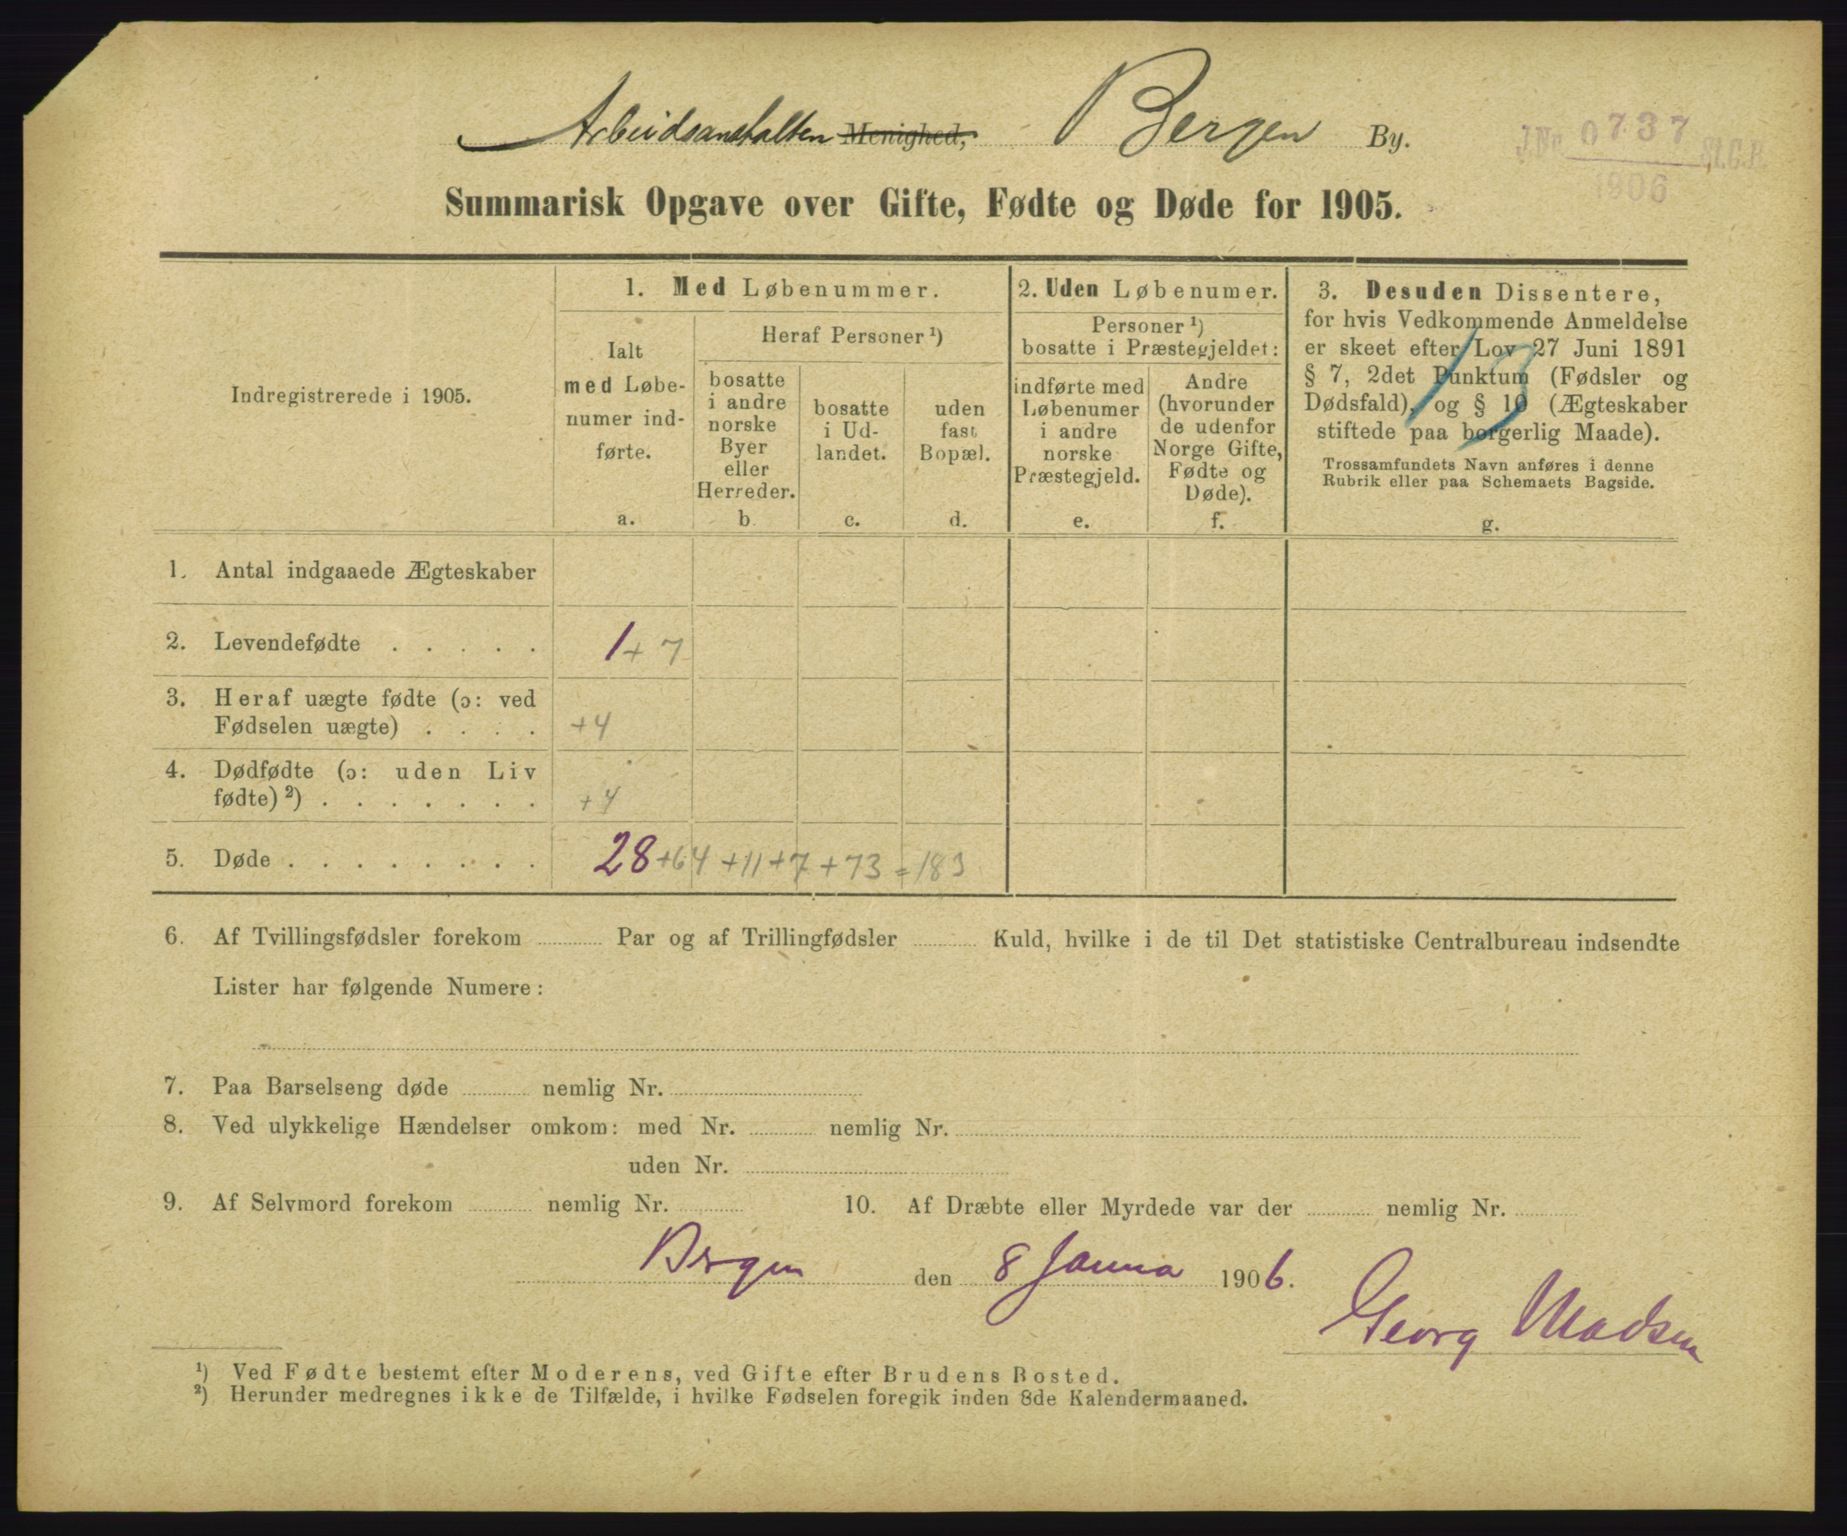 Arbeidsanstalten Menighed, Bergen By.
J.No 0737 St.C.B.
1906
Summarisk Opgave over Gifte, Fødte og Døde for 1905.
Indregistrerede i 1905.
1. Med Løbenummer.
Ialt
med Løbe-
numer ind-
førte.
a.
Heraf Personer ¹)
bosatte
i andre
norske
Byer
eller
Herreder.
b
bosatte
i Ud-
landet.
c.
uden
fast
Bopæl.
d.
2. Uden Løbenumer.
Personer ¹)
bosatte i Præstegjeldet:
indførte med
Løbenumer
i andre
norske
Præstegjeld.
e.
Andre
(hvorunder
de udenfor
Norge Gifte,
Fødte og
Døde).
f.
3. Desuden Dissentere,
for hvis Vedkommende Anmeldelse
er skeet efter Lov 27 Juni 1891
§ 7, 2det Punktum (Fødsler og
Dødsfald), og § 10 (Ægteskaber
stiftede paa borgerlig Maade).
Trossamfundets Navn anføres i denne
Rubrik eller paa Schemaets Bagside.
g.
13
1. Antal indgaaede Ægteskaber
2. Levendefødte . . . . . 1 + 7
3. Heraf uægte fødte (ɔ: ved
Fødselen uægte) . . . . +4
4. Dødfødte (ɔ: uden Liv
fødte) ²) . . . . . . . +4
5. Døde . . . . . . . . 28 +64 +11+7 +73 = 183
6. Af Tvillingsfødsler forekom Par og af Trillingfødsler Kuld, hvilke i de til Det statistiske Centralbureau indsendte
Lister har følgende Numere:
7. Paa Barselseng døde nemlig Nr.
8. Ved ulykkelige Hændelser omkom: med Nr. nemlig Nr.
uden Nr.
9. Af Selvmord forekom nemlig Nr. 10. Af Dræbte eller Myrdede var der nemlig Nr.
Bergen den 8 Janua 1906.
Georg Madsen
¹) Ved Fødte bestemt efter Moderens, ved Gifte efter Brudens Bosted.
²) Herunder medregnes ikke de Tilfælde, i hvilke Fødselen foregik inden 8de Kalendermaaned.